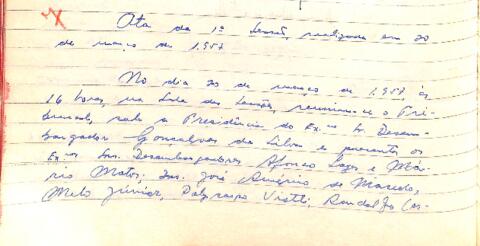 Ata da 1ª Sessão, realizada em 20
de março de 1.957
No dia 20 de março de 1.957, às
16 horas, na Sala das Sessões, reuniu-se o Tri-
bunal, sob a Presidência do Ex.mo Sr. Desem-
bargador Gonçalves da Silva e presentes os
Ex.mos Srs. Desembargadores Afonso Lages e Má-
rio Matos; Srs. José Américo de Macedo,
Melo Júnior, Vratti, Randolfo